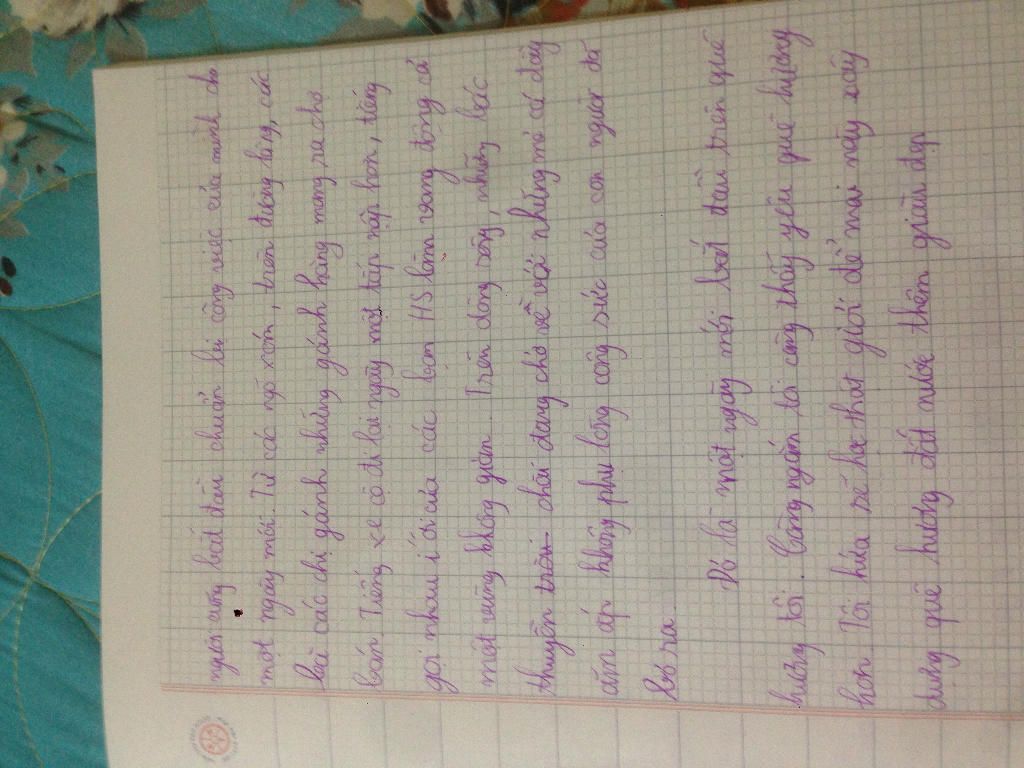 người cũng bắt đầu chuẩn bị công việc của mình cho
một ngày mới. Từ các ngõ xóm, trên đường làng, các
bà các chị gánh những gánh hàng mang ra chợ
bán. Tiếng xe cộ đi lại ngày một tấp nập hơn, tiếng
gọi nhau í ới của các bạn HS làm vang động cả
một vùng không gian. Trên dòng sông, những bác
thuyền chài đang chở về với những mẻ cá đầy
ăm ắp không phụ lòng công sức của con người đã
bỏ ra.
Đó là một ngày mới bắt đầu trên quê
hương tôi. Càng ngắm tôi càng thấy yêu quê hương
hơn. Tôi hứa sẽ học thật giỏi để mai này xây
dựng quê hương đất nước thêm giàu đẹp